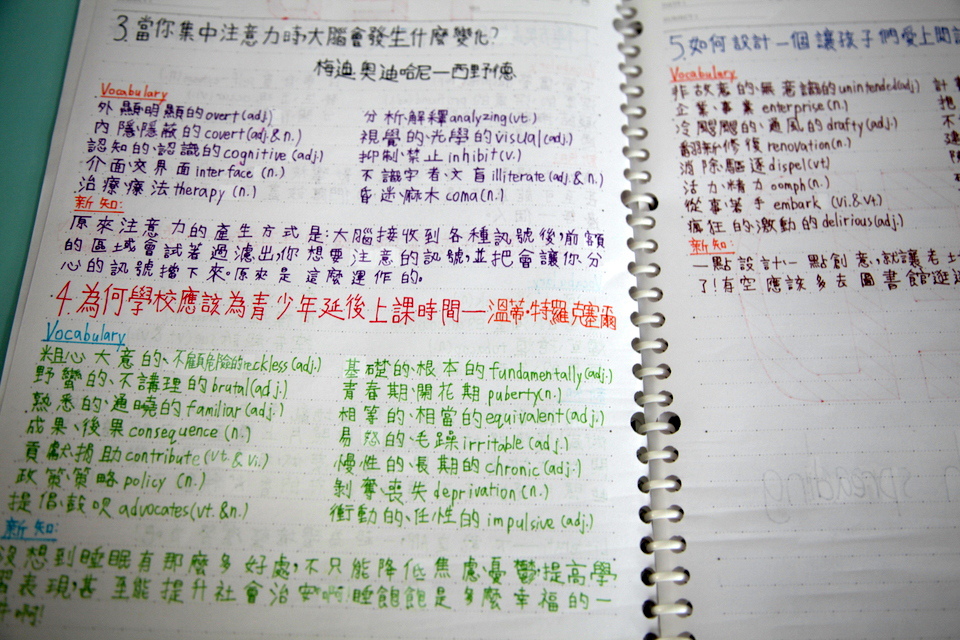 3.當你集中注意力時,大腦會發生什麼變化?
梅迪.奧迪哈尼—西野德
Vocabulary
外顯明顯的overt(adj.)
內隱隱蔽的covert(adj.&n.)
認知的、認識的cognitive (adj.)
介面、交界面interface (n.)
治療療法therapy (n.)
分析、解釋analyzing(vt.)
視覺的、光學的visual(adj.)
抑制、禁止inhibit(v.)
不識字者、文盲illiterate(adj.&n.)
昏迷、麻木coma(n.)
新知:
原來注意力的產生方式是:大腦接收到各種訊號後,前額
的區域會試著過濾出,你想要注意的訊號,並把會讓你分
心的訊號擋下來。原來是這麼運作的。
4.為何學校應該為青少年延後上課時間—溫蒂.特羅克塞爾
Vocabulary
粗心大意的、不顧危險的reckless(adj.)
野蠻的、不講理的brutal(adj.)
熟悉的、通曉的familiar(adj.)
成果、後果consequence (n.)
貢獻、捐助contribute(vt.&vi.)
政策、策略policy (n.)
提倡、鼓吹advocates(vt.&n.)
基礎的、根本的fundamentally(adj.)
青春期、開花期puberty(n.)
相等的、相當的equivalent(adj.)
易怒的、毛躁irritable (adj.)
慢性的、長期的chronic (adj.)
剝奪、喪失deprivation (n.)
衝動的、任性的impulsive (adj.)
新知:
沒想到睡眠有那麼多好處,不只能降低焦慮憂鬱,提高學
習表現,甚至能提升社會治安啊!睡飽飽是多麼幸福的一
件啊!
5.如何設計一個讓孩子們愛上閱
Vocabulary
非故意的、無意識的unintended(adj)
企業、事業enterprise(n.)
冷颼颼的、通風的drafty(adj.)
翻新、修復renovation(n.)
消除、驅逐dispel(vt)
活力、精力oomph(n.)
從事、著手embark (vi.&vt.)
瘋狂的、激動的delirious(adj.)
新知:
一點設計、一點創意,就讓老
了!有空應該多去圖書館逛
spreading